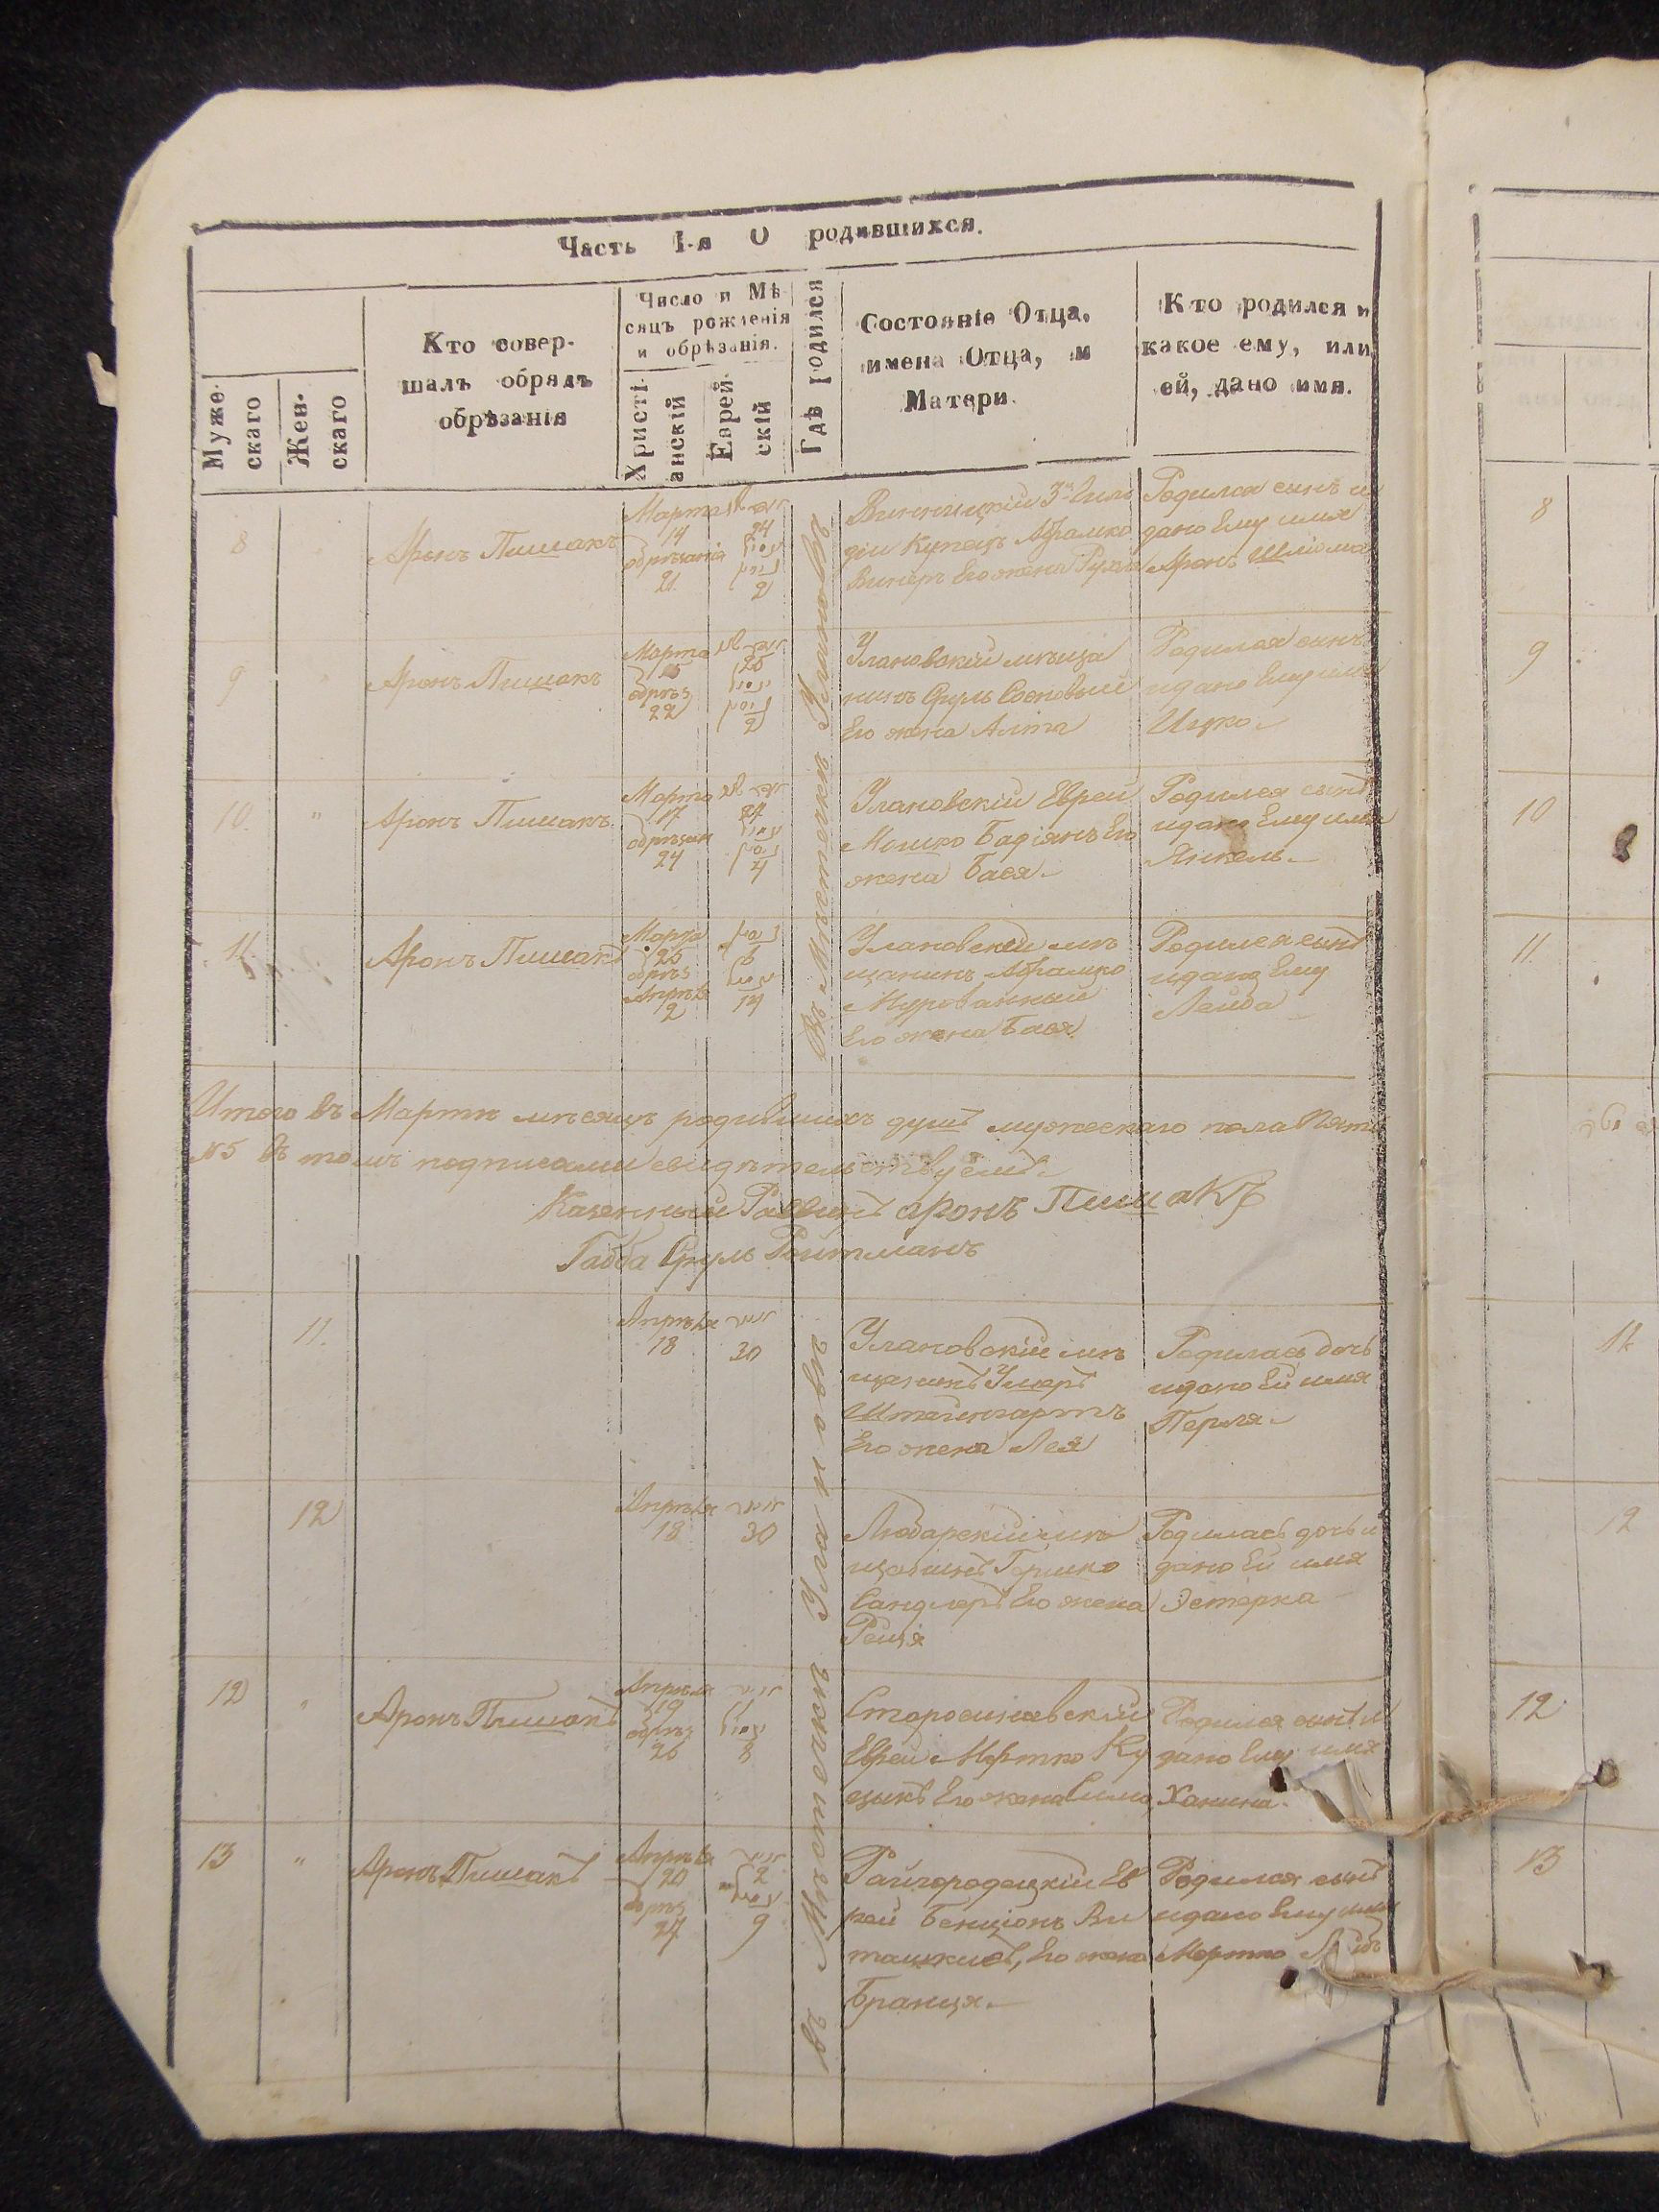 Часть I-я О родившихся.
Муже-
скаго
Жен-
скаго
Кто совер-
шалъ обрядъ
обрѣзанія
Число и Мѣ-
сяцъ рожденія
и обрѣзанія.
Христі-
анскій
Еврей-
скій
Гдѣ родился
Состояніе Отца,
имена Отца, и
Матери.
Кто родился и
какое ему, или
ей, дано имя.
въ Мѣстечкѣ Улановѣ
8 " Аронъ Пишакъ
Марта
14
обрѣзанія
21
24
ניסן
2
Винницкій 3й Гиль
діи Купецъ Абрамко
Винеръ Его жена Рухля
Родился сынъ и
дано Ему имя
Аронъ Шлiома
9 " Аронъ Пишакъ
Марта
15
обрѣз
22
25
ניסן
Улановскій мѣща
нинъ Сруль
Его жена Алта
Родился сынъ
и дано Ему имя
Ицко
10. " Аронъ Пишакъ
Марта
17
обрѣзан
24
27
ניסן
4
Улановскій Еврей
Мошко Бадіянъ Его
жена Бася
Родился сынъ
и дано Ему имя
Янкель
11. Аронъ Пишакъ
Марта
26
обрѣз
Апрѣля
2
ניסן
6
14
Улановскій мѣ
щанинъ Абрамко
Мурованный
Его жена Бася
Родился сынъ
и дано Ему
Лейба
Итого въ Мартѣ мѣсяцѣ родившихъ душъ мужескаго пола Пять
№5 Въ томъ подписами свидѣтельствуемъ
Казенный Раввинъ Аронъ Пишакъ
Габба Сруль Ройтманъ
въ Мѣстечкѣ Улановѣ
11.
Апрѣля
18
30
Улановскій мѣ
щанинъ Умеръ
Штейнгартъ
Его жена Лея
Родилась дочь
и дано Ей имя
Перля
12
Апрѣля
18
30
Любарскій мѣ
щанинъ Гершко
Сандлеръ Его жена
Рейзя
Родилась дочь и
дано Ей имя
Эстерка
12 " Аронъ Пишакъ
Апрѣля
19
обрѣз
26
1
8
Старосинявскій
Еврей Мортко Ку
цыкъ Его жена Сима
Родился сынъ и
дано Ему имя
Ханина
13 " Аронъ Пишакъ
Апрѣля
20
обрѣз
27
2
9
Райгородецкій Ев
рей Бенціонъ Ви
Его жена
Бранця
Родился сынъ
и дано Ему имя
Мортко
8
9
10
11
12
12
13